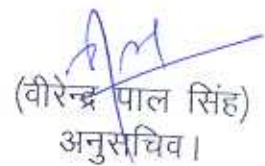 (वीरेन्द्र पाल सिंह)
अनुसचिव।